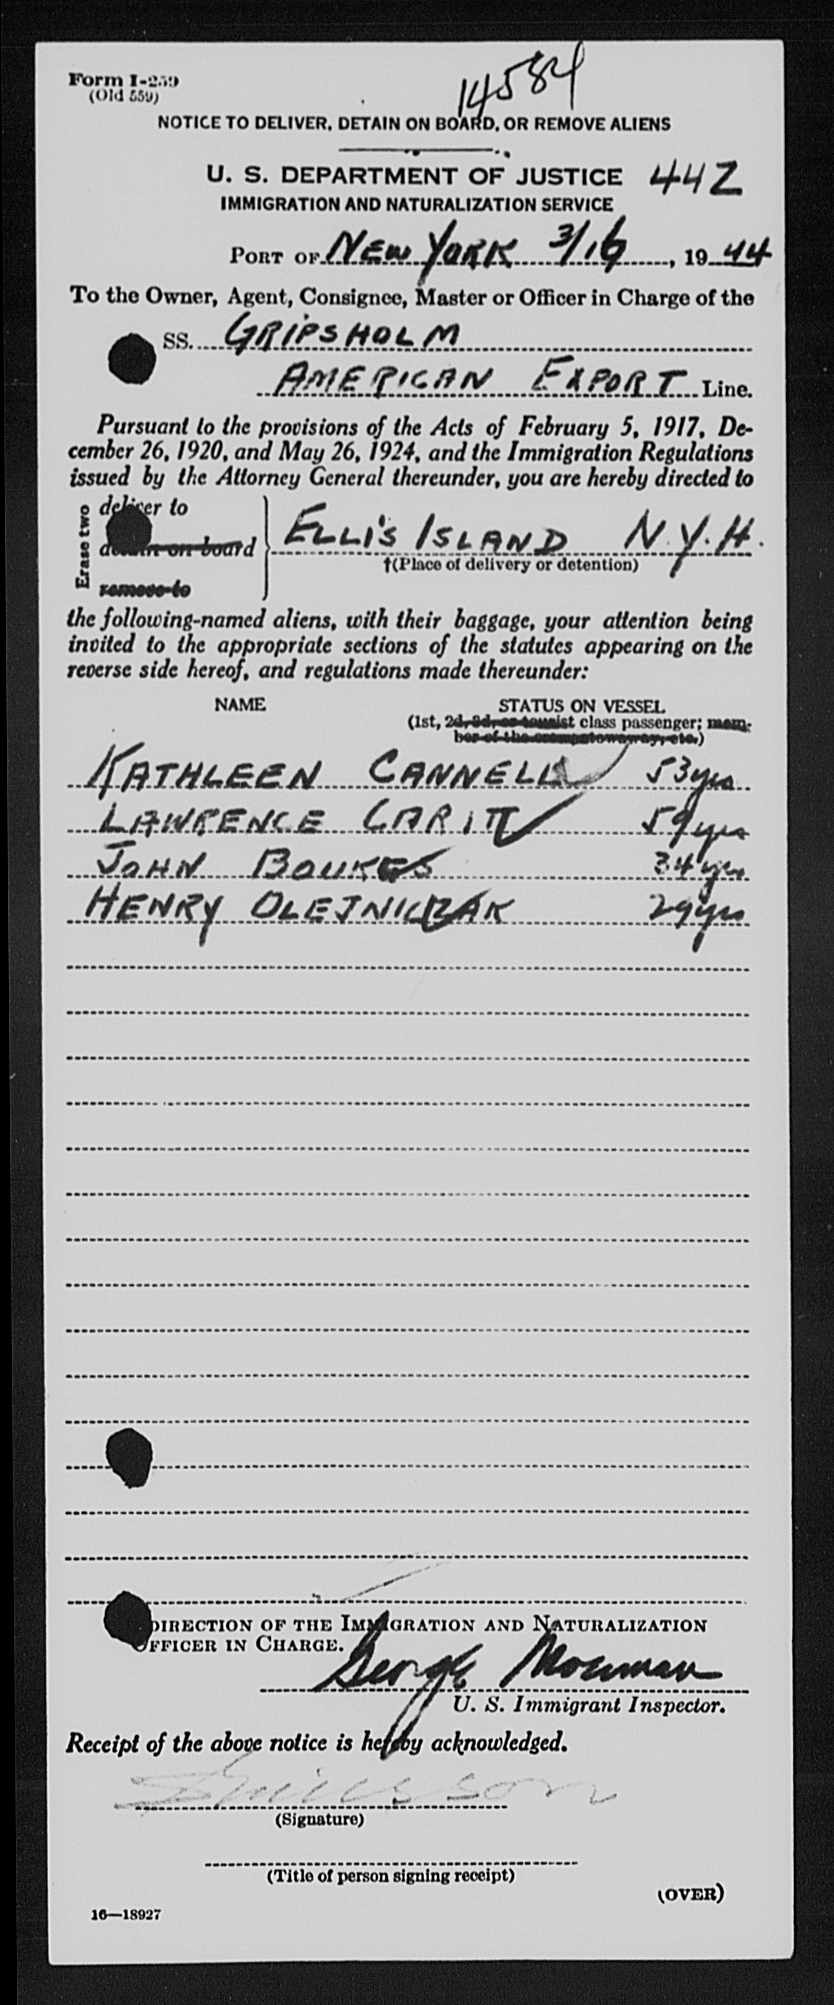 Form I-259
(Old 559)
14584
NOTICE TO DELIVER, DETAIN ON BOARD, OR REMOVE ALIENS
U. S. DEPARTMENT OF JUSTICE 442
IMMIGRATION AND NATURALIZATION SERVICE
PORT OF NEW YORK 3/16, 1944
To the Owner, Agent, Consignee, Master or Officer in Charge of the
SS. GRIPSHOLM
AMERICAN EXPORT Line.
Pursuant to the provisions of the Acts of February 5, 1917, De-
cember 26, 1920, and May 26, 1924, and the Immigration Regulations
issued by the Attorney General thereunder, you are hereby directed to
Erase two
deliver to
detain on board
remove to
ELLIS ISLAND N.Y.H.
†(Place of delivery or detention)
the following-named aliens, with their baggage, your attention being
invited to the appropriate sections of the statutes appearing on the
reverse side hereof, and regulations made thereunder:
NAME STATUS ON VESSEL
(1st, 2d, 3d, or tourist class passenger; mem-
ber of the
KATHLEEN CANNELL 53yrs
LAWRENCE 59yrs
JOHN BOUKES 34yrs
HENRY OLEJNICZAK 29yrs
DIRECTION OF THE IMMIGRATION AND NATURALIZATION
OFFICER IN CHARGE.
George
U. S. Immigrant Inspector.
Receipt of the above notice is hereby acknowledged.
(Signature)
(Title of person signing receipt)
(OVER)
16—18927